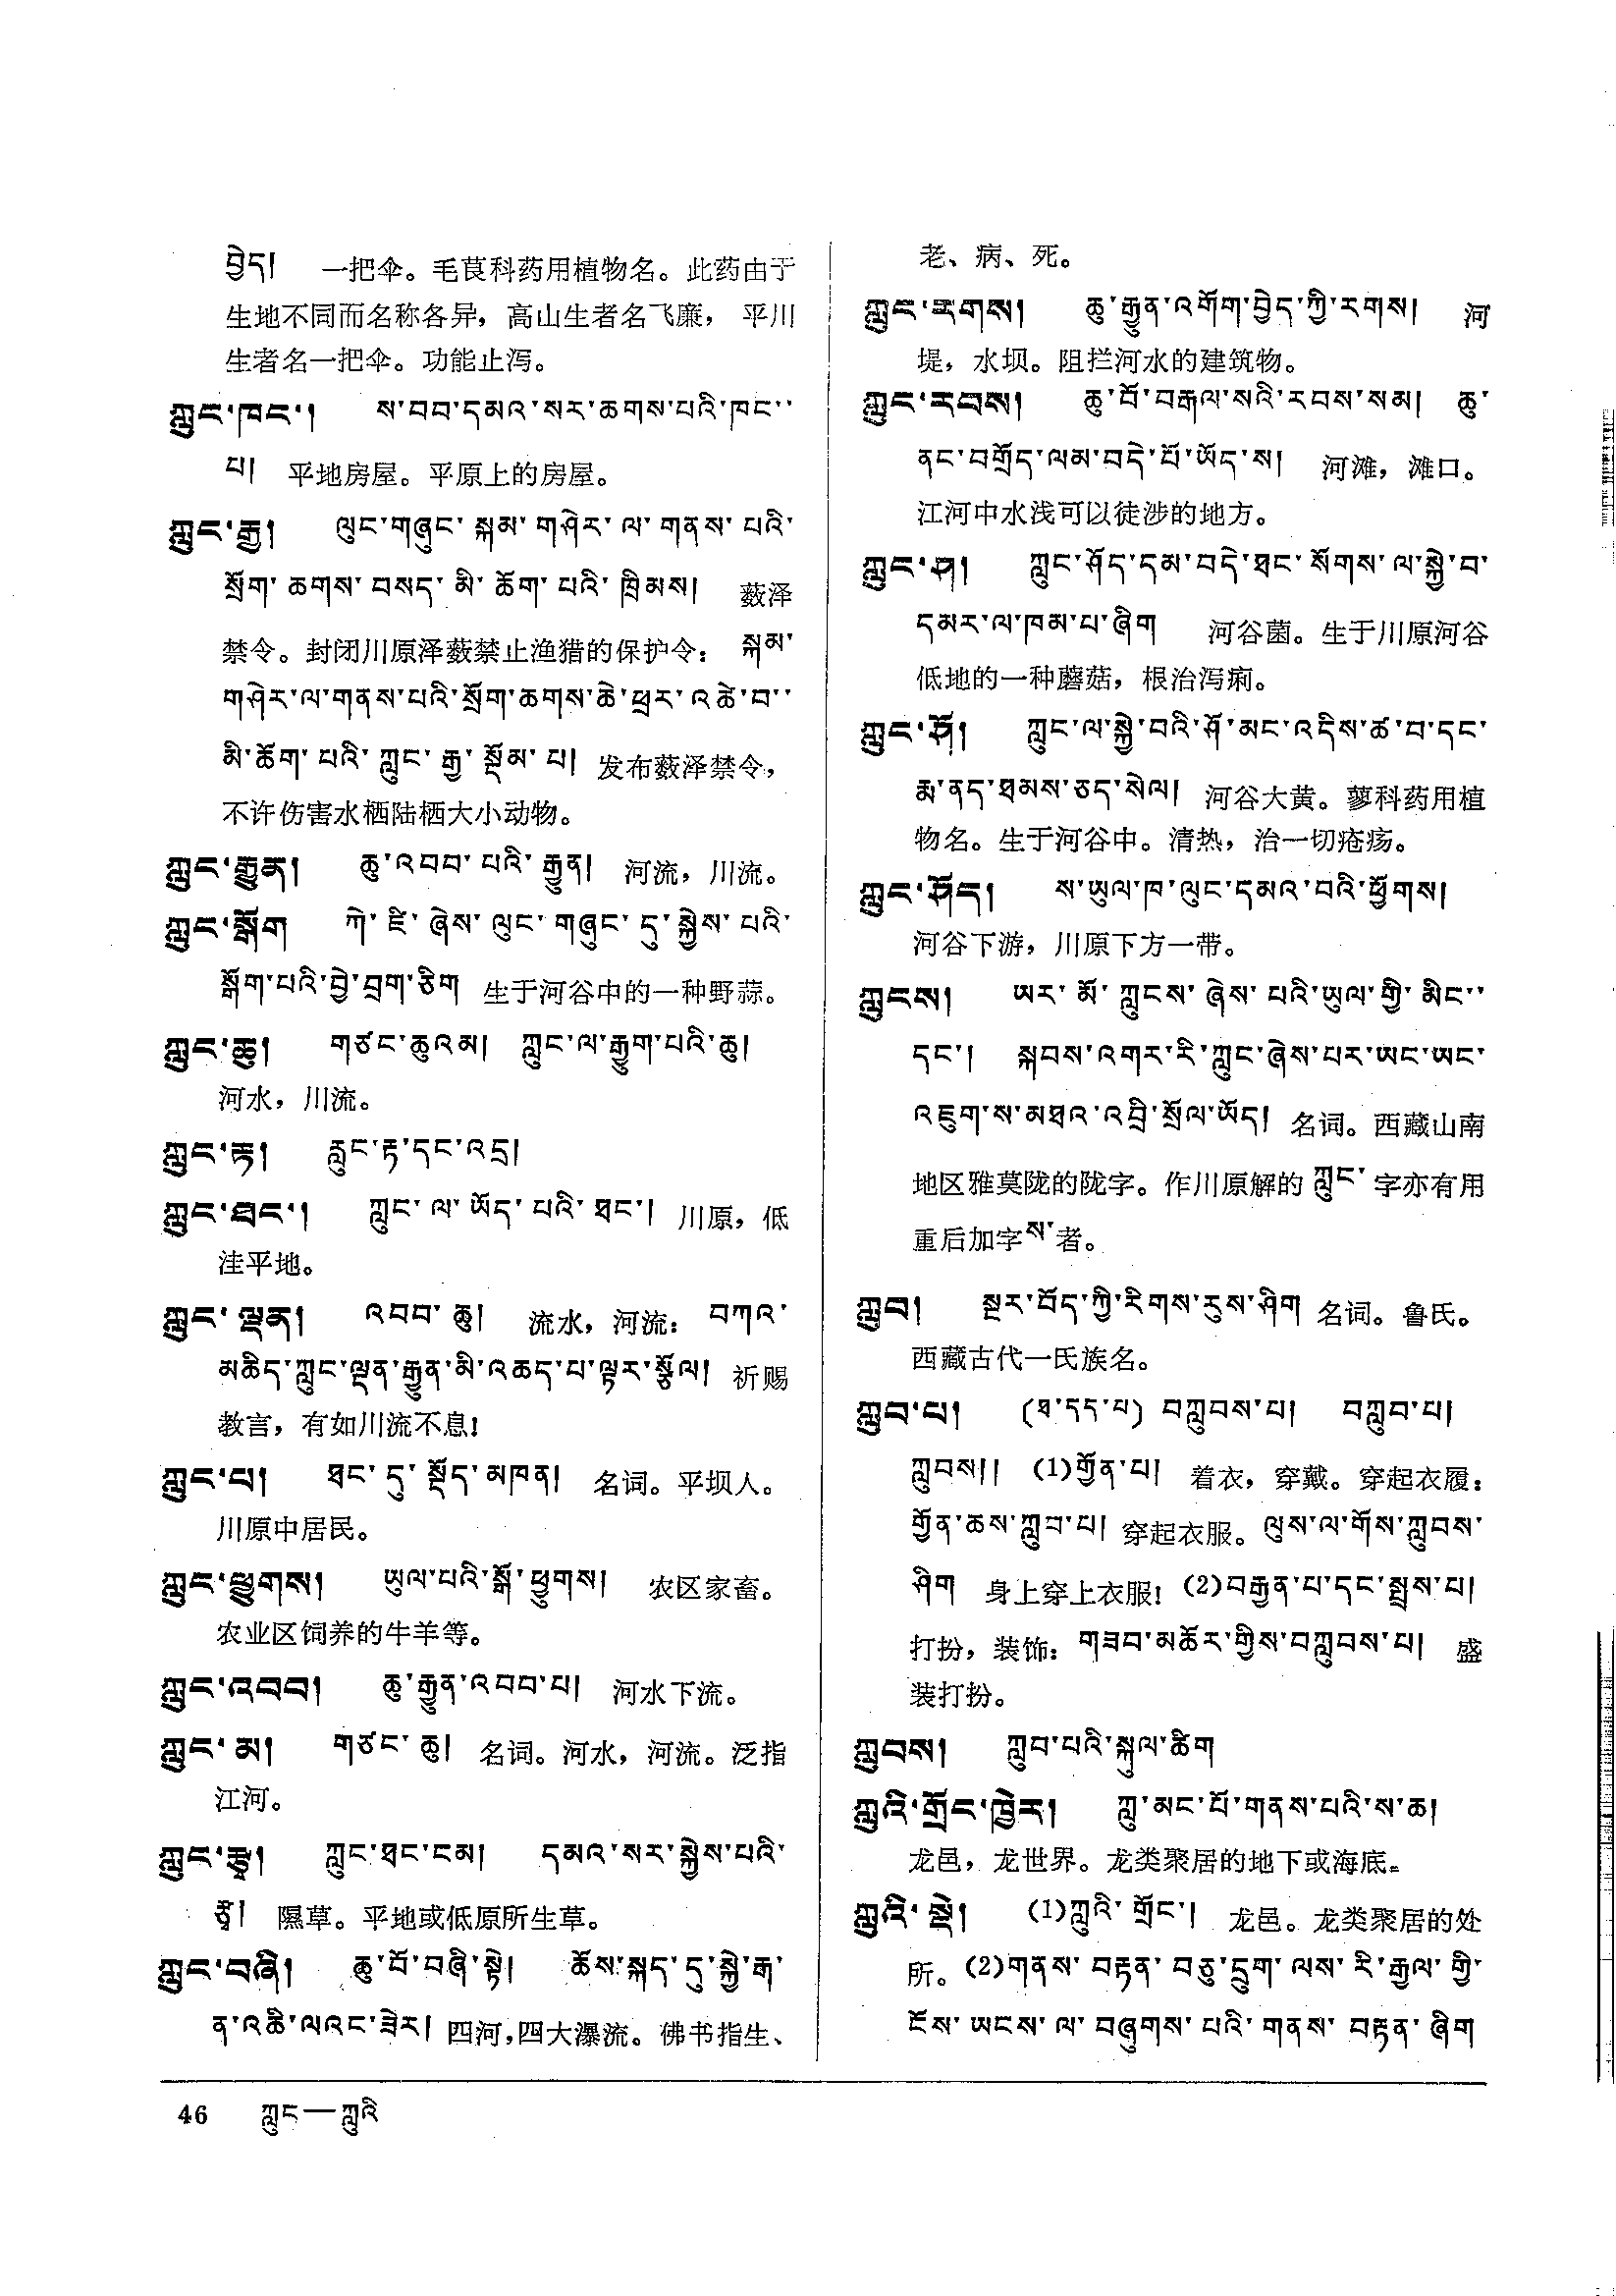 བྱེད། 一把伞。毛莨科药用植物名。此药由于
生地不同而名称各异，高山生者名飞廉， 平川
生者名一把伞。功能止泻。
ཀླུང་ཁང་། ས་བབ་དམའ་སར་ཆགས་པའི་ཁང་་
པ། 平地房屋。平原上的房屋。
ཀླུང་རྒྱ། ལུང་གཞུང་སྐམ་གཤེར་ལ་གནས་པའི་
སྲོག་ཆགས་བསད་མི་ཆོག་པའི་ཁྲིམས། 薮泽
禁令。封闭川原泽薮禁止渔猎的保护令：སྐམ་
གཤེར་ལ་གནས་པའི་སྲོག་ཆགས་ཆེ་ཕྲར་འཚེ་བ་་
མི་ཆོག་པའི་ཀླུང་རྒྱ་སྡོམ་པ། 发布薮泽禁令，
不许伤害水栖陆栖大小动物。
ཀླུང་རྒྱུན། ཆུ་འབབ་པའི་རྒྱུན། 河流，川流。
ཀླུང་སྒོག ཀེ་ཇི་ཞེས་ལུང་གཞུང་དུ་སྐྱེས་པའི་
སྒོག་པའི་བྱེ་བྲག་ཅིག 生于河谷中的一种野蒜。
ཀླུང་ཆུ། གཙང་ཆུའམ། ཀླུང་ལ་རྒྱུག་པའི་ཆུ།
河水，川流。
ཀླུང་རྟ། རླུང་རྟ་དང་འདྲ།
ཀླུང་ཐང་། ཀླུང་ལ་ཡོད་པའི་ཐང་། 川原，低
洼平地。
ཀླུང་ལྡན། འབབ་ཆུ། 流水，河流：བཀའ་
མཆིད་ཀླུང་ལྡན་རྒྱུན་མི་འཆད་པ་ལྟར་སྩོལ། 祈赐
教言，有如川流不息！
ཀླུང་པ། ཐང་དུ་སྡོད་མཁན། 名词。平坝人。
川原中居民。
ཀླུང་ཕྱུགས། ཡུལ་པའི་སྒོ་ཕྱུགས། 农区家畜。
农业区饲养的牛羊等。
ཀླུང་འབབ། ཆུ་རྒྱུན་འབབ་པ། 河水下流。
ཀླུང་མ། གཙང་ཆུ། 名词。河水，河流。泛指
江河。
ཀླུང་རྩྭ། ཀླུང་ཐང་ངམ། དམའ་སར་སྐྱེས་པའི་
རྩྭ། 隰草。平地或低原所生草。
ཀླུང་བཞི། ཆུ་བོ་བཞི་སྟེ། ཆོས་སྐད་དུ་སྐྱེ་རྒ་
ན་འཆི་ལའང་ཟེར། 四河，四大瀑流。佛书指生、
老、病、死。
ཀླུང་རགས། ཆུ་རྒྱུན་འགོག་བྱེད་ཀྱི་རགས། 河
堤，水坝。阻拦河水的建筑物。
ཀླུང་རབས། ཆུ་བོ་བརྒལ་སའི་རབས་སམ། ཆུ་
ནང་བགྲོད་ལམ་བདེ་པོ་ཡོད་ས། 河滩，滩口。
江河中水浅可以徒涉的地方。
ཀླུང་ཤ། ཀླུང་ཤོད་དམ་བདེ་ཐང་སོགས་ལ་སྐྱེ་བ་
དམར་ལ་ཁམ་པ་ཞིག 河谷菌。生于川原河谷
低地的一种蘑菇，根治泻痢。
ཀླུང་ཤོ། ཀླུང་ལ་སྐྱེ་བའི་ཤོ་མང་འདིས་ཚ་བ་དང་
རྨ་ནད་ཐམས་ཅད་སེལ། 河谷大黄。蓼科药用植
物名。生于河谷中。清热，治一切疮疡。
ཀླུང་ཤོད། ས་ཡུལ་ཁ་ལུང་དམའ་བའི་ཕྱོགས།
河谷下游，川原下方一带。
ཀླུངས། ཡར་མོ་ཀླུངས་ཞེས་པའི་ཡུལ་གྱི་མིང་་
དང་། སྐབས་འགར་རི་ཀླུང་ཞེས་པར་ཡང་ཡང་
འཇུག་ས་མཐའ་འབྲི་སྲོལ་ཡོད། 名词。西藏山南
地区雅莫陇的陇字。作川原解的 ཀླུང་ 字亦有用
重后加字ས་者。
ཀླུབ། སྔར་བོད་ཀྱི་རིགས་རུས་ཤིག 名词。鲁氏。
西藏古代一氏族名。
ཀླུབ་པ། (ཐ་དད་པ) བཀླུབས་པ། བཀླུབ་པ།
ཀླུབས།། (1)གྱོན་པ། 着衣，穿戴。穿起衣履：
གྱོན་ཆས་ཀླུབ་པ། 穿起衣服。ལུས་ལ་གོས་ཀླུབས་
ཤིག 身上穿上衣服！(2)བརྒྱན་པ་དང་སྤྲས་པ།
打扮，装饰：གཟབ་མཆོར་གྱིས་བཀླུབས་པ། 盛
装打扮。
ཀླུབས། ཀླུབ་པའི་སྐུལ་ཚིག
ཀླུའི་གྲོང་ཁྱེར། ཀླུ་མང་པོ་གནས་པའི་ས་ཆ།
龙邑，龙世界。龙类聚居的地下或海底。
ཀླུའི་སྡེ། (1)ཀླུའི་གྲོང་། 龙邑。龙类聚居的处
所。(2)གནས་བརྟན་བཅུ་དྲུག་ལས་རི་རྒྱལ་གྱི་
ངོས་ཡངས་ལ་བཞུགས་པའི་གནས་བརྟན་ཞིག
46 ཀླུང—ཀླུའི